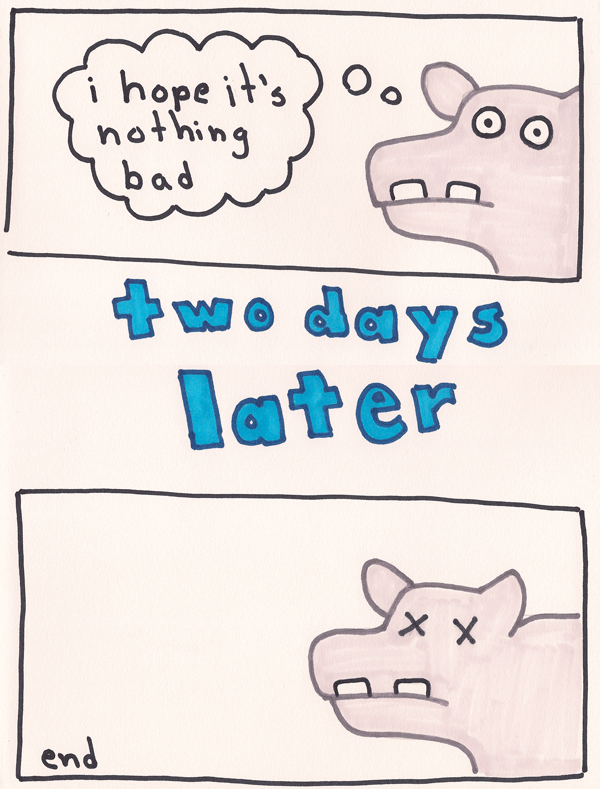 i hope it's
nothing
bad
two days
later
end